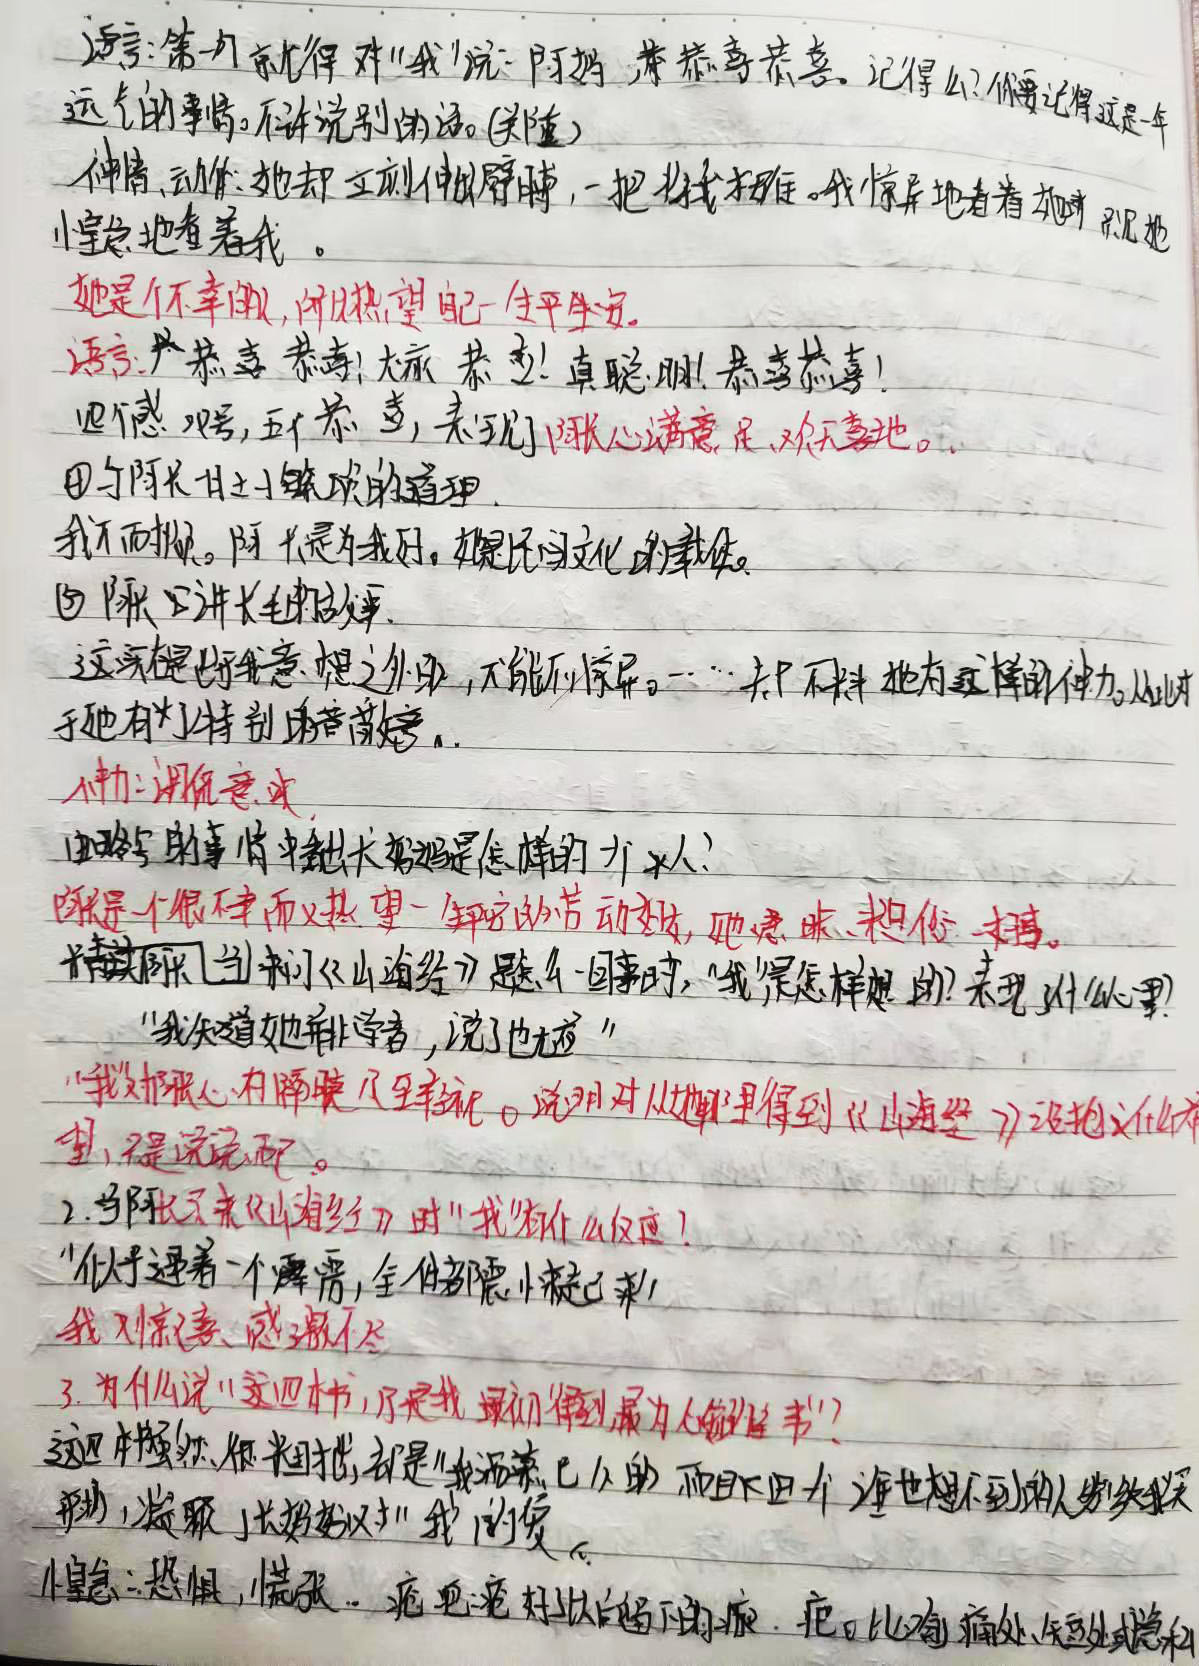 语言:第一句就得对"我"说:阿妈,恭喜恭喜。记得么?你要记得这是一年
运气的事情。不许说别的话。(关隆)
神情、动作:她却立刻伸出臂膊,一把将我按住。我惊异地看着她时 只见她
惶急地看着我。
她是个不幸的人,所以热望自己一生平安。
语言: 恭喜恭喜!大家恭喜!真聪明!恭喜恭喜!
四个感叹号,五个恭喜,表现了阿长心满意足、欢天喜地。
④写阿长 的道理.
我不而烦。阿长是为我好。她是民间文化的载体。
⑤阿长 讲长毛的故事.
这实在是出于我意想之外的,不能不惊异。……夫,不料她有这样的神力。从此对
于她有了特别的敬意。
神力:调侃意味
由略写的事情中看出长妈妈是怎样的一个人?
阿长是一个很不幸而又热望一生平安的劳动妇女,她愚昧、粗俗、
精读 阿长 当来问《山海经》是怎么一回事时,"我"是怎样想的?表现了什么心理?
"我知道她并非学者,说了也无益"
"我"对阿长心有隔膜及至轻视。说明对从她那里得到《山海经》没抱什么希
望,只是说说而已。
2.当阿长买来《山海经》时"我"有什么反应?
"似乎遇着一个霹雳,全体都震悚起来"
我又惊又喜、感激不尽
3.为什么说"这四本书,乃是我最初得到,最为心爱的宝书"?
这四本书虽然很粗拙,却是"我"渴慕已久的 而且下由一个谁也想不到的人 给我买
来的,凝聚了长妈妈对"我"的爱。
惶急:恐惧,慌张.. 疮疤:疮好以后留下的 疤。比喻痛处、短处或隐私